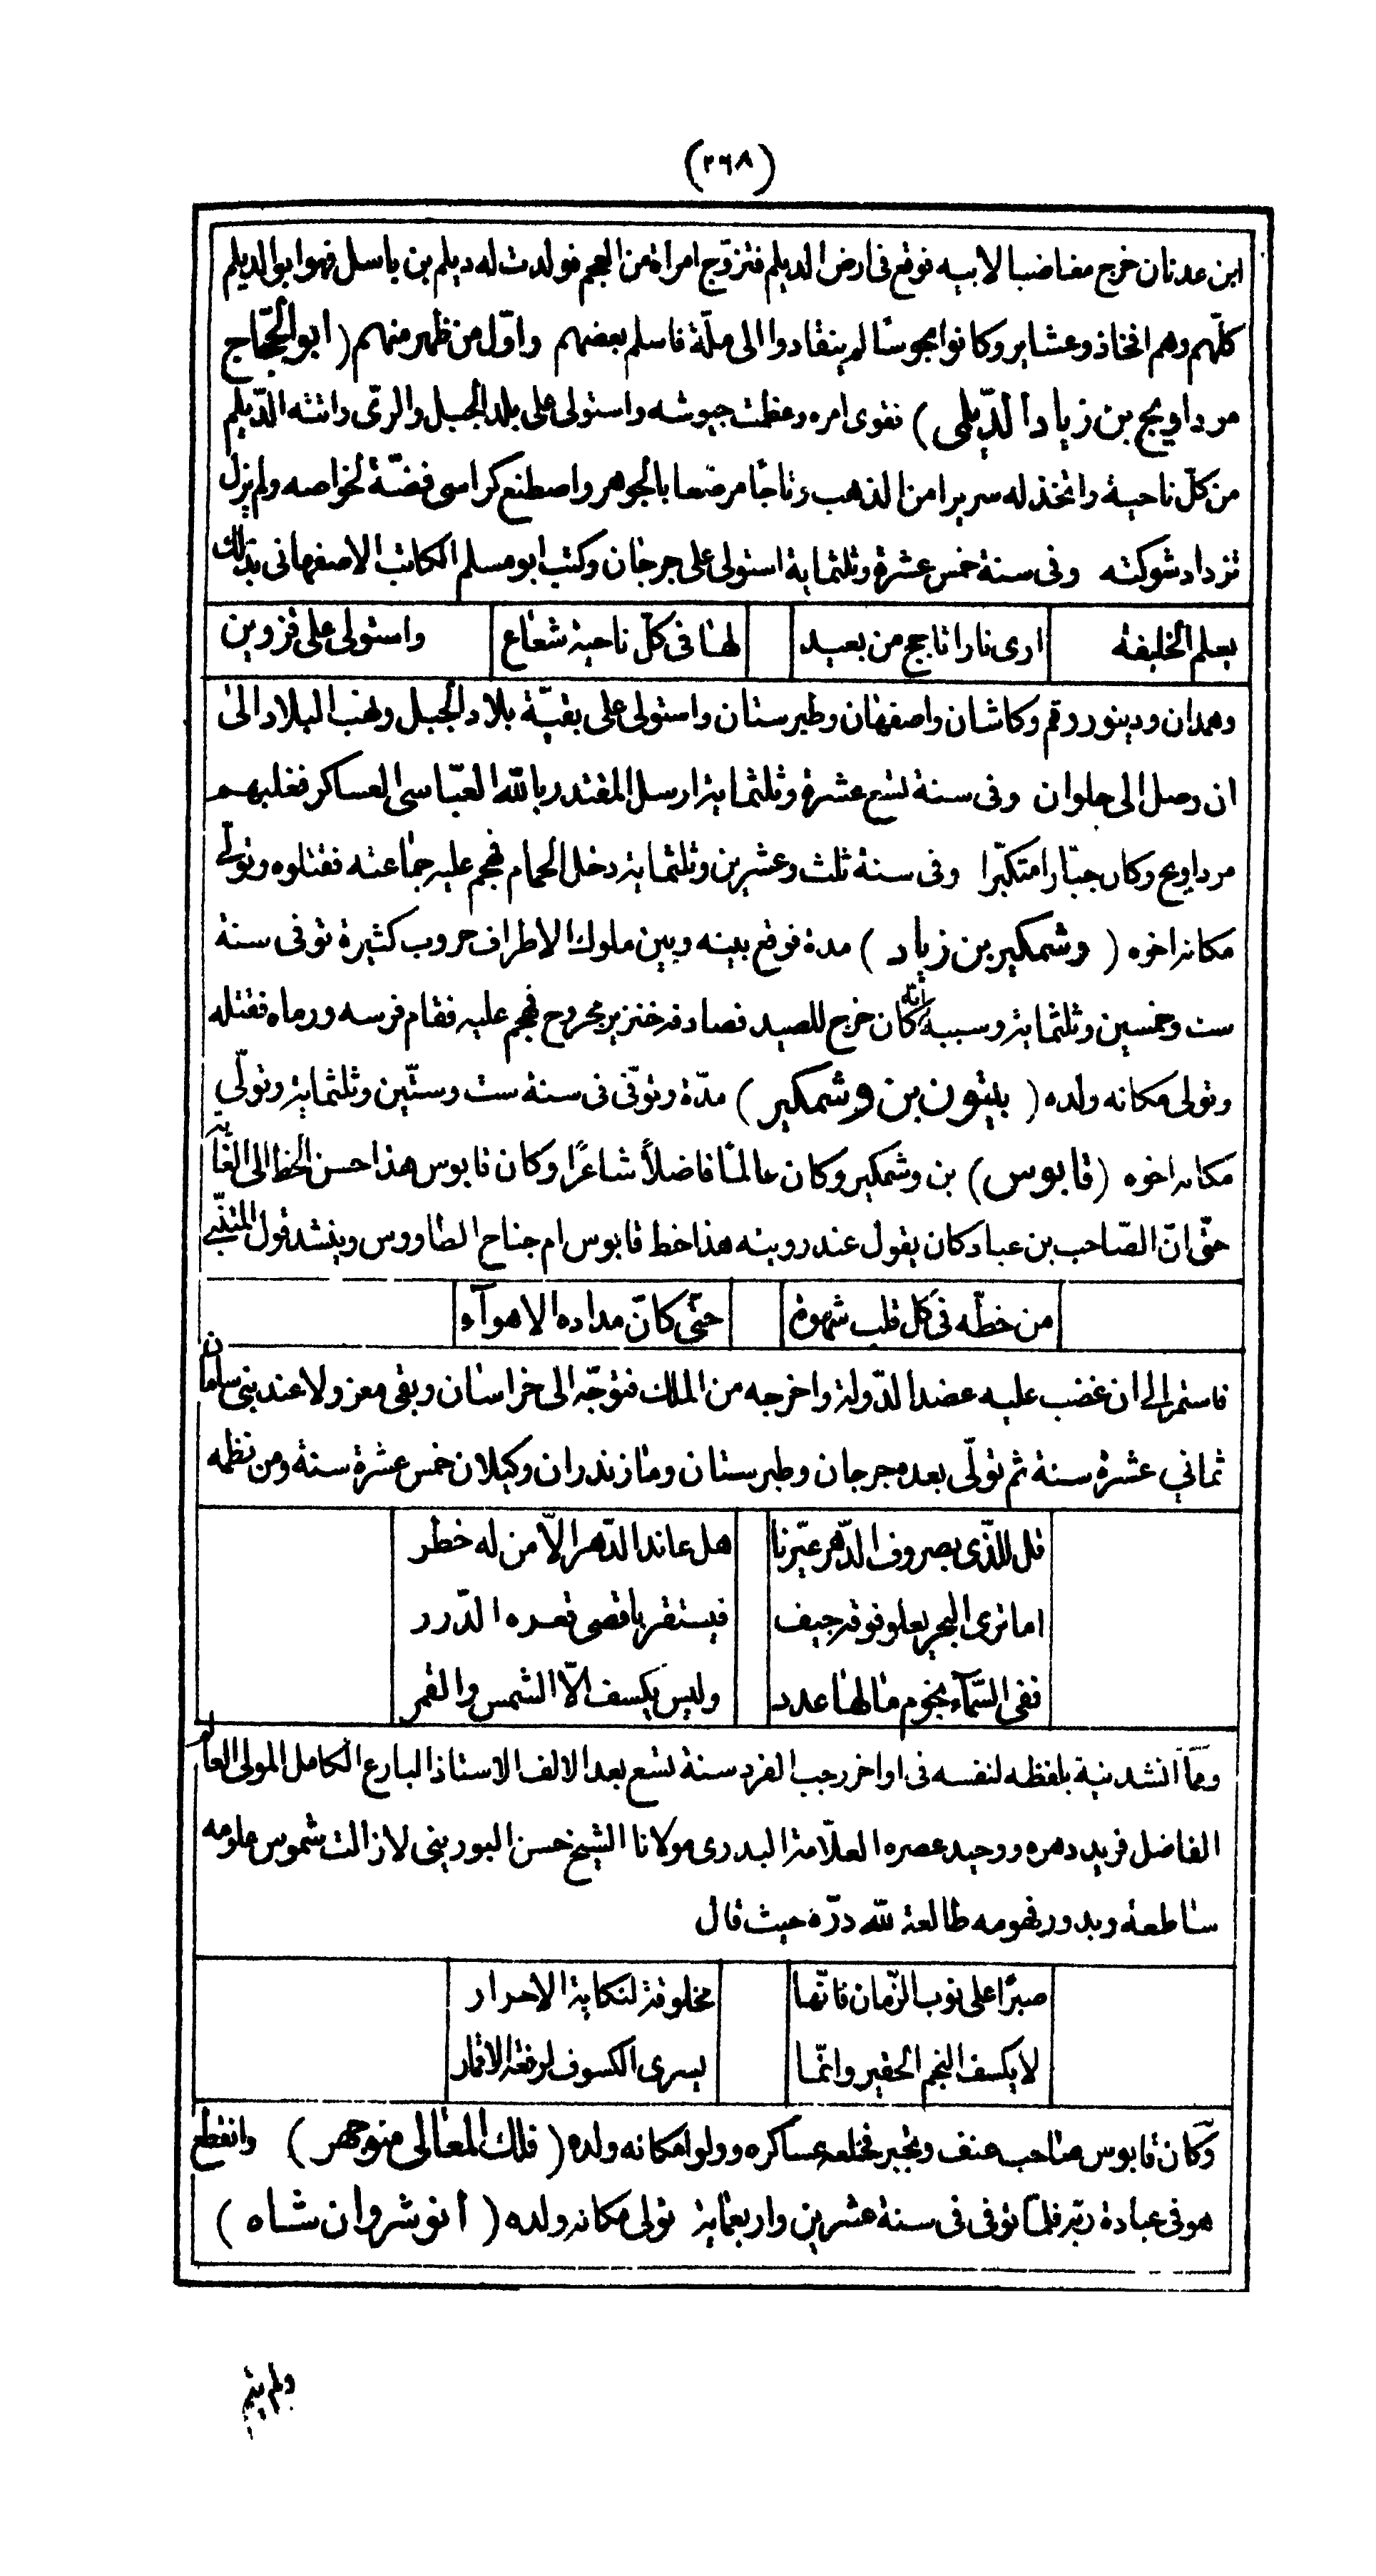 (٢٦٨)
ابن عدنان خرج مغاضبا لابيه فوقع فى ارض الديلم فتزوّج امراة من العجم فولدت له ديلم بن باسل فهو ابو الديلم
كلّهم وهم افخاذ وعشاير وكانوا مجوسًا لم ينقادوا الى ملّة فاسلم بعضهم واوّل من ظهر منهم ( ابو الحجّاج
مرداويج بن زياد الدّيلمى ) فقوى امره وعظمت جيوشه واستولى على بلد الجبل والرىّ واتته الدّيلم
من كلّ ناحية واتخذ له سريرا من الذهب وتاجًا مرصّعا بالجوهر واصطنع كراسى فضّة لخواصه ولم يزل
تزداد شوكته وفى سنة خمس عشرة وثلثماية استولى على جرجان وكتب ابو مسلم الكاتب الاصفهانى بذلك
يعلم الخليفة ارى نارا تاجج من بعيد لها فى كلّ ناحية شعاع واستولى على قزوين
وهمدان ودينور وقم وكاشان واصفهان وطبرستان واستولى على بقيّة بلاد الجبل ونهب البلاد الى
ان وصل الى حلوان وفى سنة تسع عشرة وثلثماية ارسل المقتدر بالله العبّاسى العساكر فغلبهم
مرداويج وكان جبّارا متكبّرا وفى سنة ثلث وعشرين وثلثماية دخل الحمام فهجم عليه جماعته فقتلوه وتولّى
مكانه اخوه ( وشمكير بن زياد ) مدة فوقع بينه وبين ملوك الاطراف حروب كثيرة توفى سنة
ست وخمسين وثلثماية وسببه انّه كان خرج للصيد فصادفه خنزير مجروح فهجم عليه فقام فرسه ورماه فقتله
وتولى مكانه ولده ( بيتون بن وشمكير ) مدّة وتوفّى فى سنة ست وستّين وثلثماية وتولّى
مكانه اخوه ( قابوس ) بن وشمكير وكان عالمًا فاضلاً شاعرًا وكان قابوس هذا حسن الخط الى الغاية
حتّى انّ الصّاحب بن عباد كان يقول عند رويته هذا خط قابوس ام جناح الطاووس وينشد قول المتنبّى
من خطّه فى كل قلب شهوة حتّى كانّ مداده الاهوآء
فاستمر الى ان غضب عليه عضد الدّولة واخرجه من الملك فتوجّه الى خراسان وبقى معزولا عند بنى سامان
ثمانى عشرة سنة ثم تولّى بعده جرجان وطبرستان ومازندران وكيلان خمس عشرة سنة ومن نظمه
قل للذّى بصروف الدّهر عيّرنا هل عاند الدّهر الاّ من له خطر
اما ترى البحر يعلو فوقه جيف فيستقر باقصى قعره الدّرر
ففى السّمآء نجوم ما لها عدد وليس يكسف الاّ الشمس والقمر
وممّا انشدنيه بلفظه لنفسه فى اواخر رجب الفرد سنة تسع بعد الالف الاستاذ البارع الكامل المولى العالم
الفاضل فريد دهره ووحيد عصره العلّامة البدرى مولانا الشيخ حسن البورينى لا زالت شموس علومه
ساطعة وبدور فهومه طالعة لله درّه حيث قال
صبرًا على نوب الزّمان فانّها مخلوقة لنكاية الاحرار
لا يكسف النجم الحقير وانّما يسرى الكسوف لرفعة الاقمار
وكان قابوس صاحب عنف وتجبر فخلعه عساكره وولوا مكانه ولده ( فلك المعالى منوجهر ) وانقطع
هو فى عبادة ربّه فلمّا توفى فى سنة عشرين واربعماية تولى مكانه ولده ( انوشروان شاه )
ولم يتم